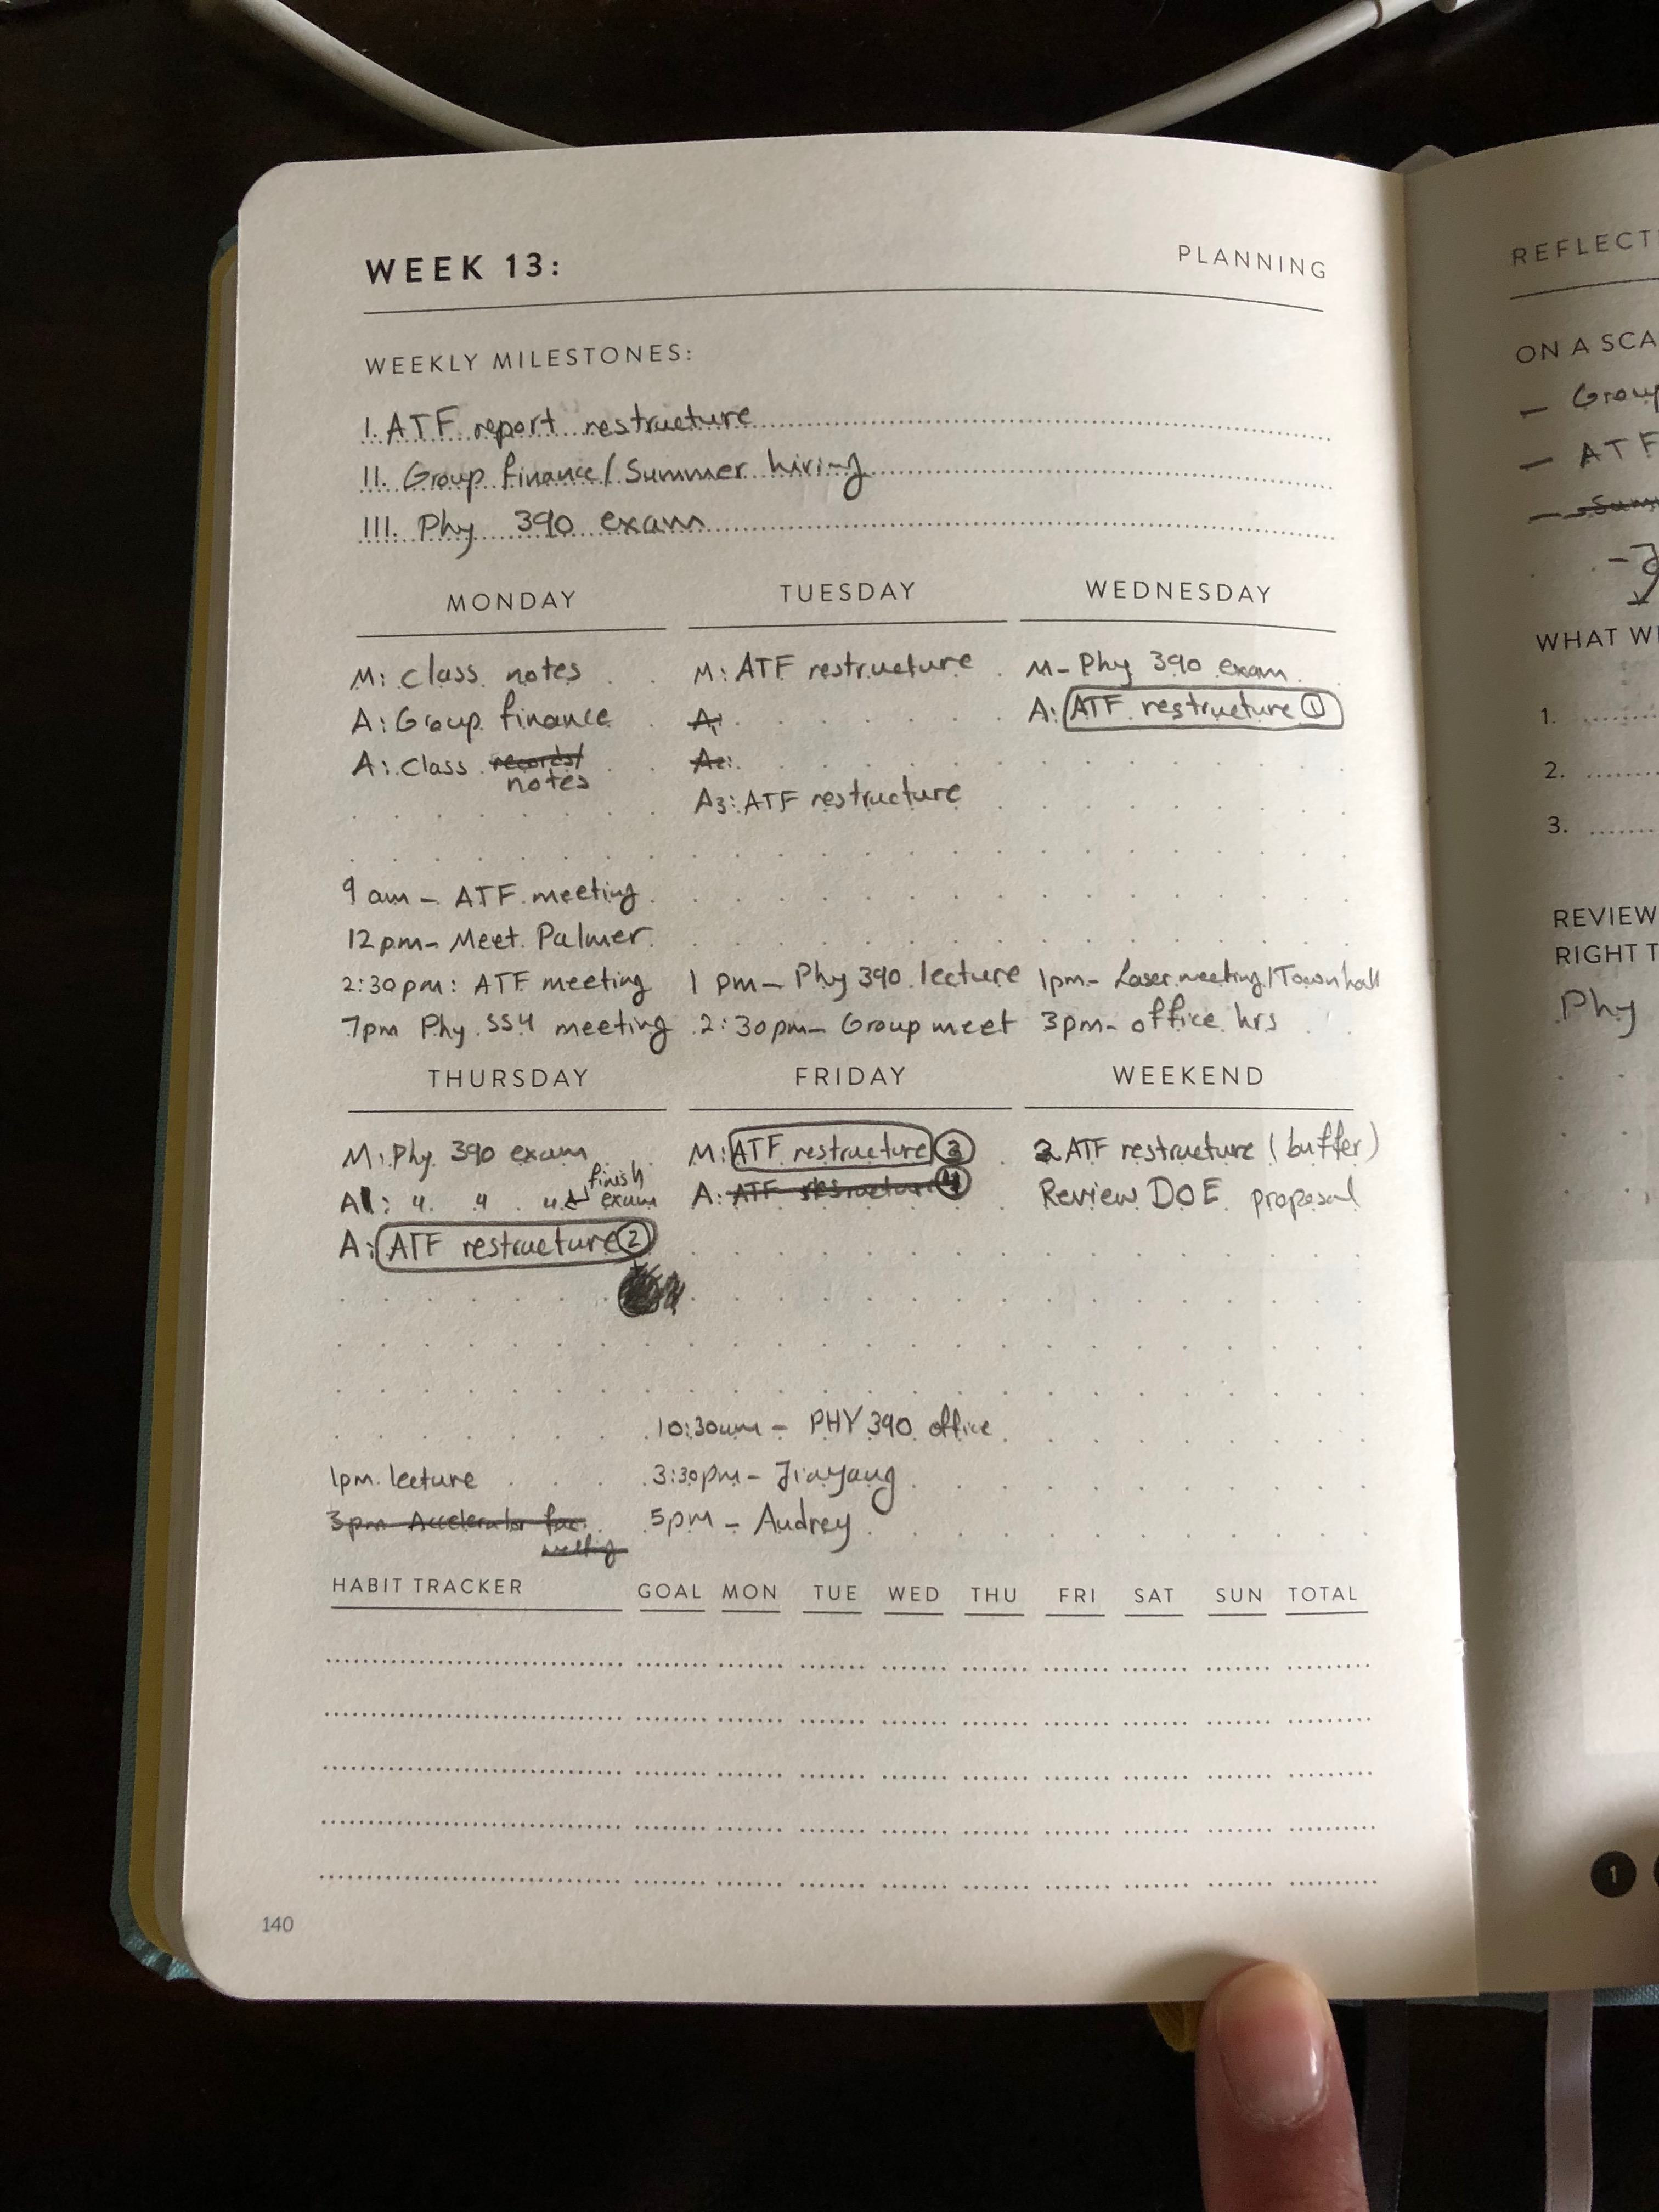 WEEK 13:
PLANNING
WEEKLY MILESTONES:
I. ATF report restructure
II. Group finance/Summer hiring
III. Phy 390 exam
MONDAY
M: class notes
A: Group finance
A: Class records/
notes
9 am - ATF meeting
12pm - Meet Palmer
2:30pm: ATF meeting
7pm Phy 554 meeting
TUESDAY
M: ATF restructure
A:
A2:
A3: ATF restructure
1 pm - Phy 390 lecture
2:30pm - Group meet
WEDNESDAY
M - Phy 390 exam
A: ATF restructure 1
1pm - Laser meeting/Townhall
3pm - office hrs
THURSDAY
M: Phy 390 exam
A1: " " " finish
exam
A: ATF restructure 2
1pm lecture
3pm Accelerator
meeting
FRIDAY
M: ATF restructure 3
A: ATF restructure 4
10:30am - PHY 390 office
3:30pm - Jiayang
5pm - Audrey
WEEKEND
ATF restructure (buffer)
Review DOE proposal
HABIT TRACKER GOAL MON TUE WED THU FRI SAT SUN TOTAL
140
REFLECT
ON A SCA
- Group
- ATF
- Sum
WHAT W
1.
2.
3.
REVIEW
RIGHT T
Phy
1